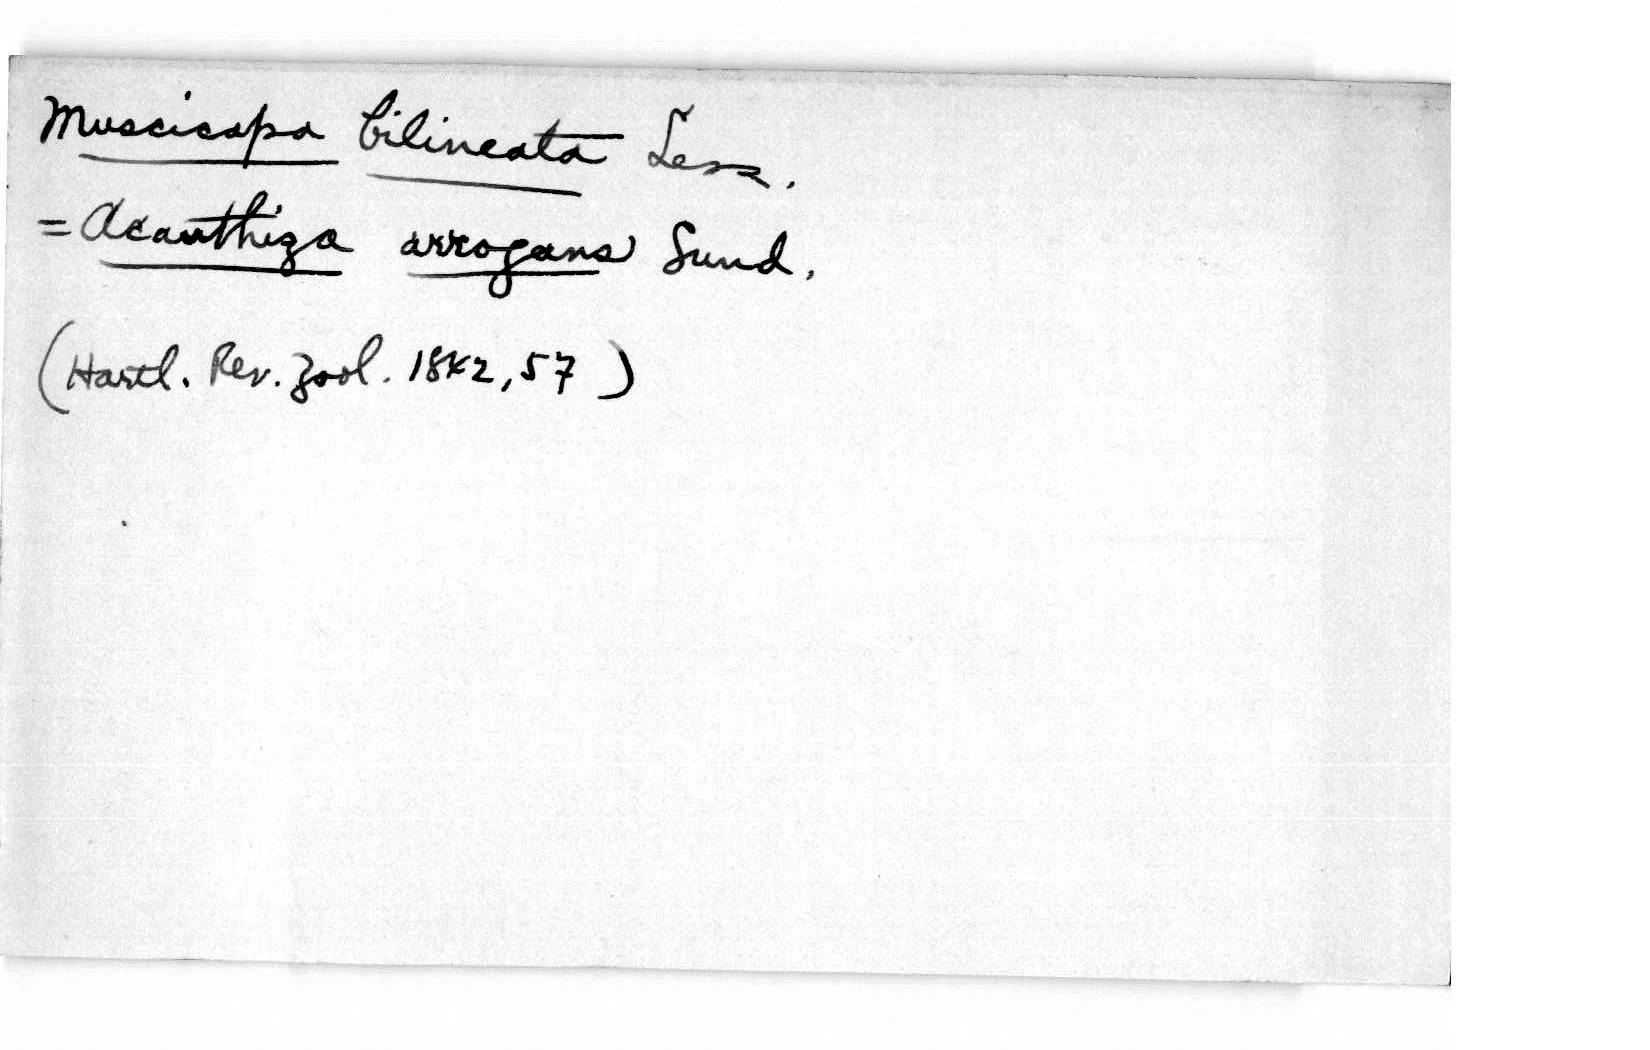 Muscicapa bilineata Less.
= Acanthiza arrogans Sund.
(Hartl. Rev. Zool. 1842, 57)